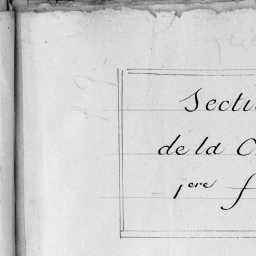 Secti
de la C
1ere f